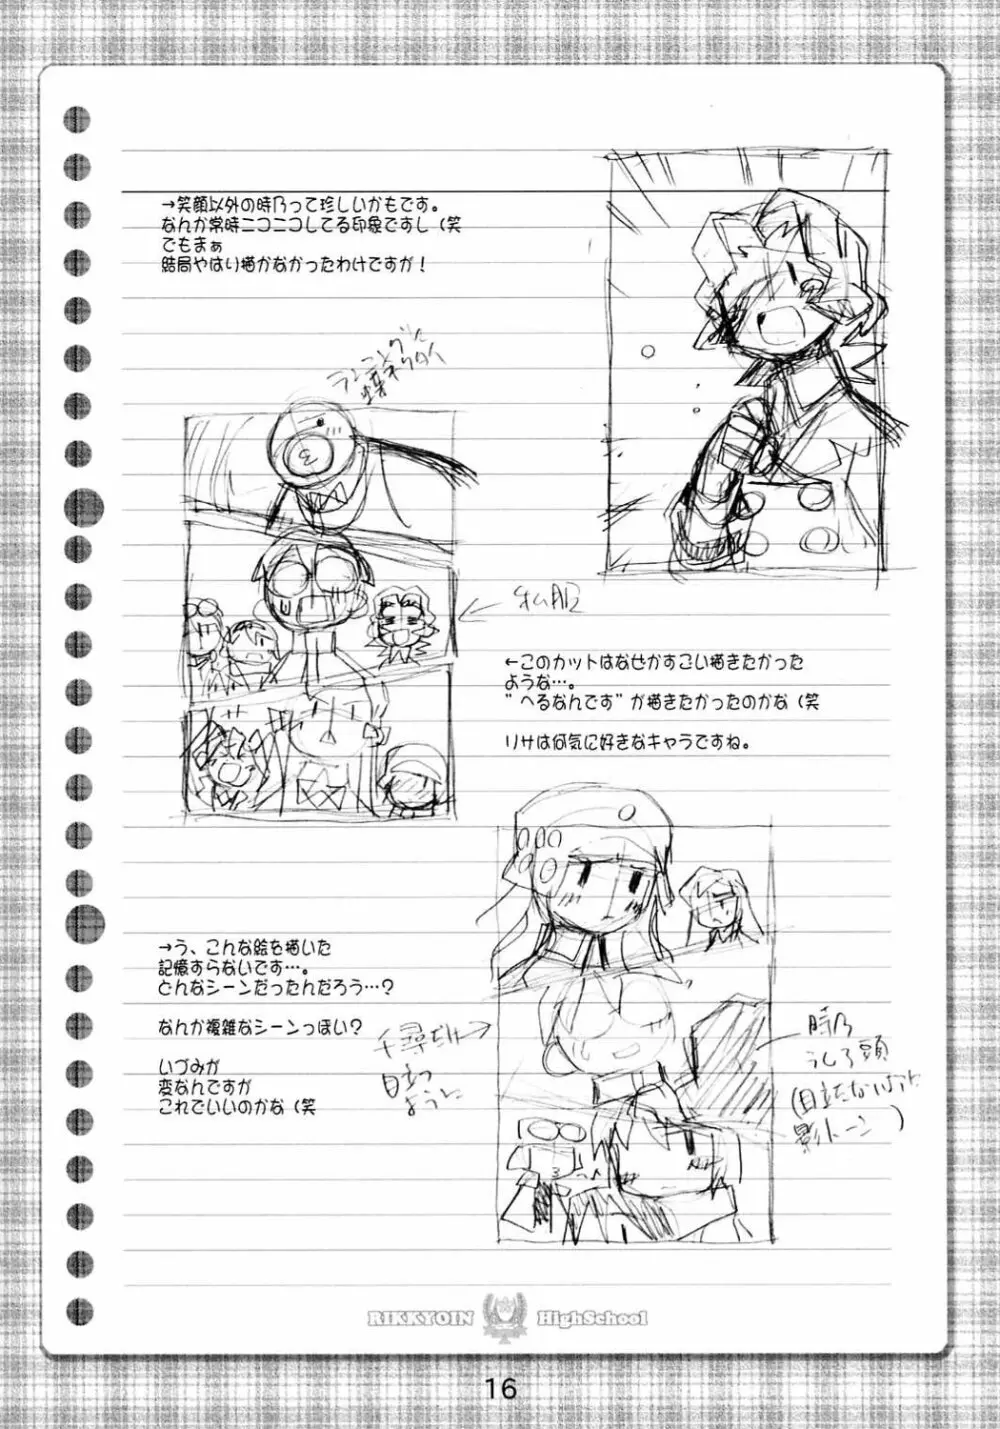 →笑顔以外の時乃って珍しいかもです。
なんか常時ニコニコしてる印象ですし（笑
でもまぁ
結局やはり描かなかったわけですが！
私服
←このカットはなぜかすごい描きたかった
ような…。
”へるなんです”が描きたかったのかな（笑
リサは何気に好きなキャラですね。
→う、こんな絵を描いた
記憶すらないです…。
どんなシーンだったんだろう…？
なんか複雑なシーンっぽい？
いづみが
変なんですが
これでいいのかな（笑
千尋だけ
目立つ
ように
時乃
うしろ頭
(目立たないように
影トーン)
RIKKYOIN HighSchool
16